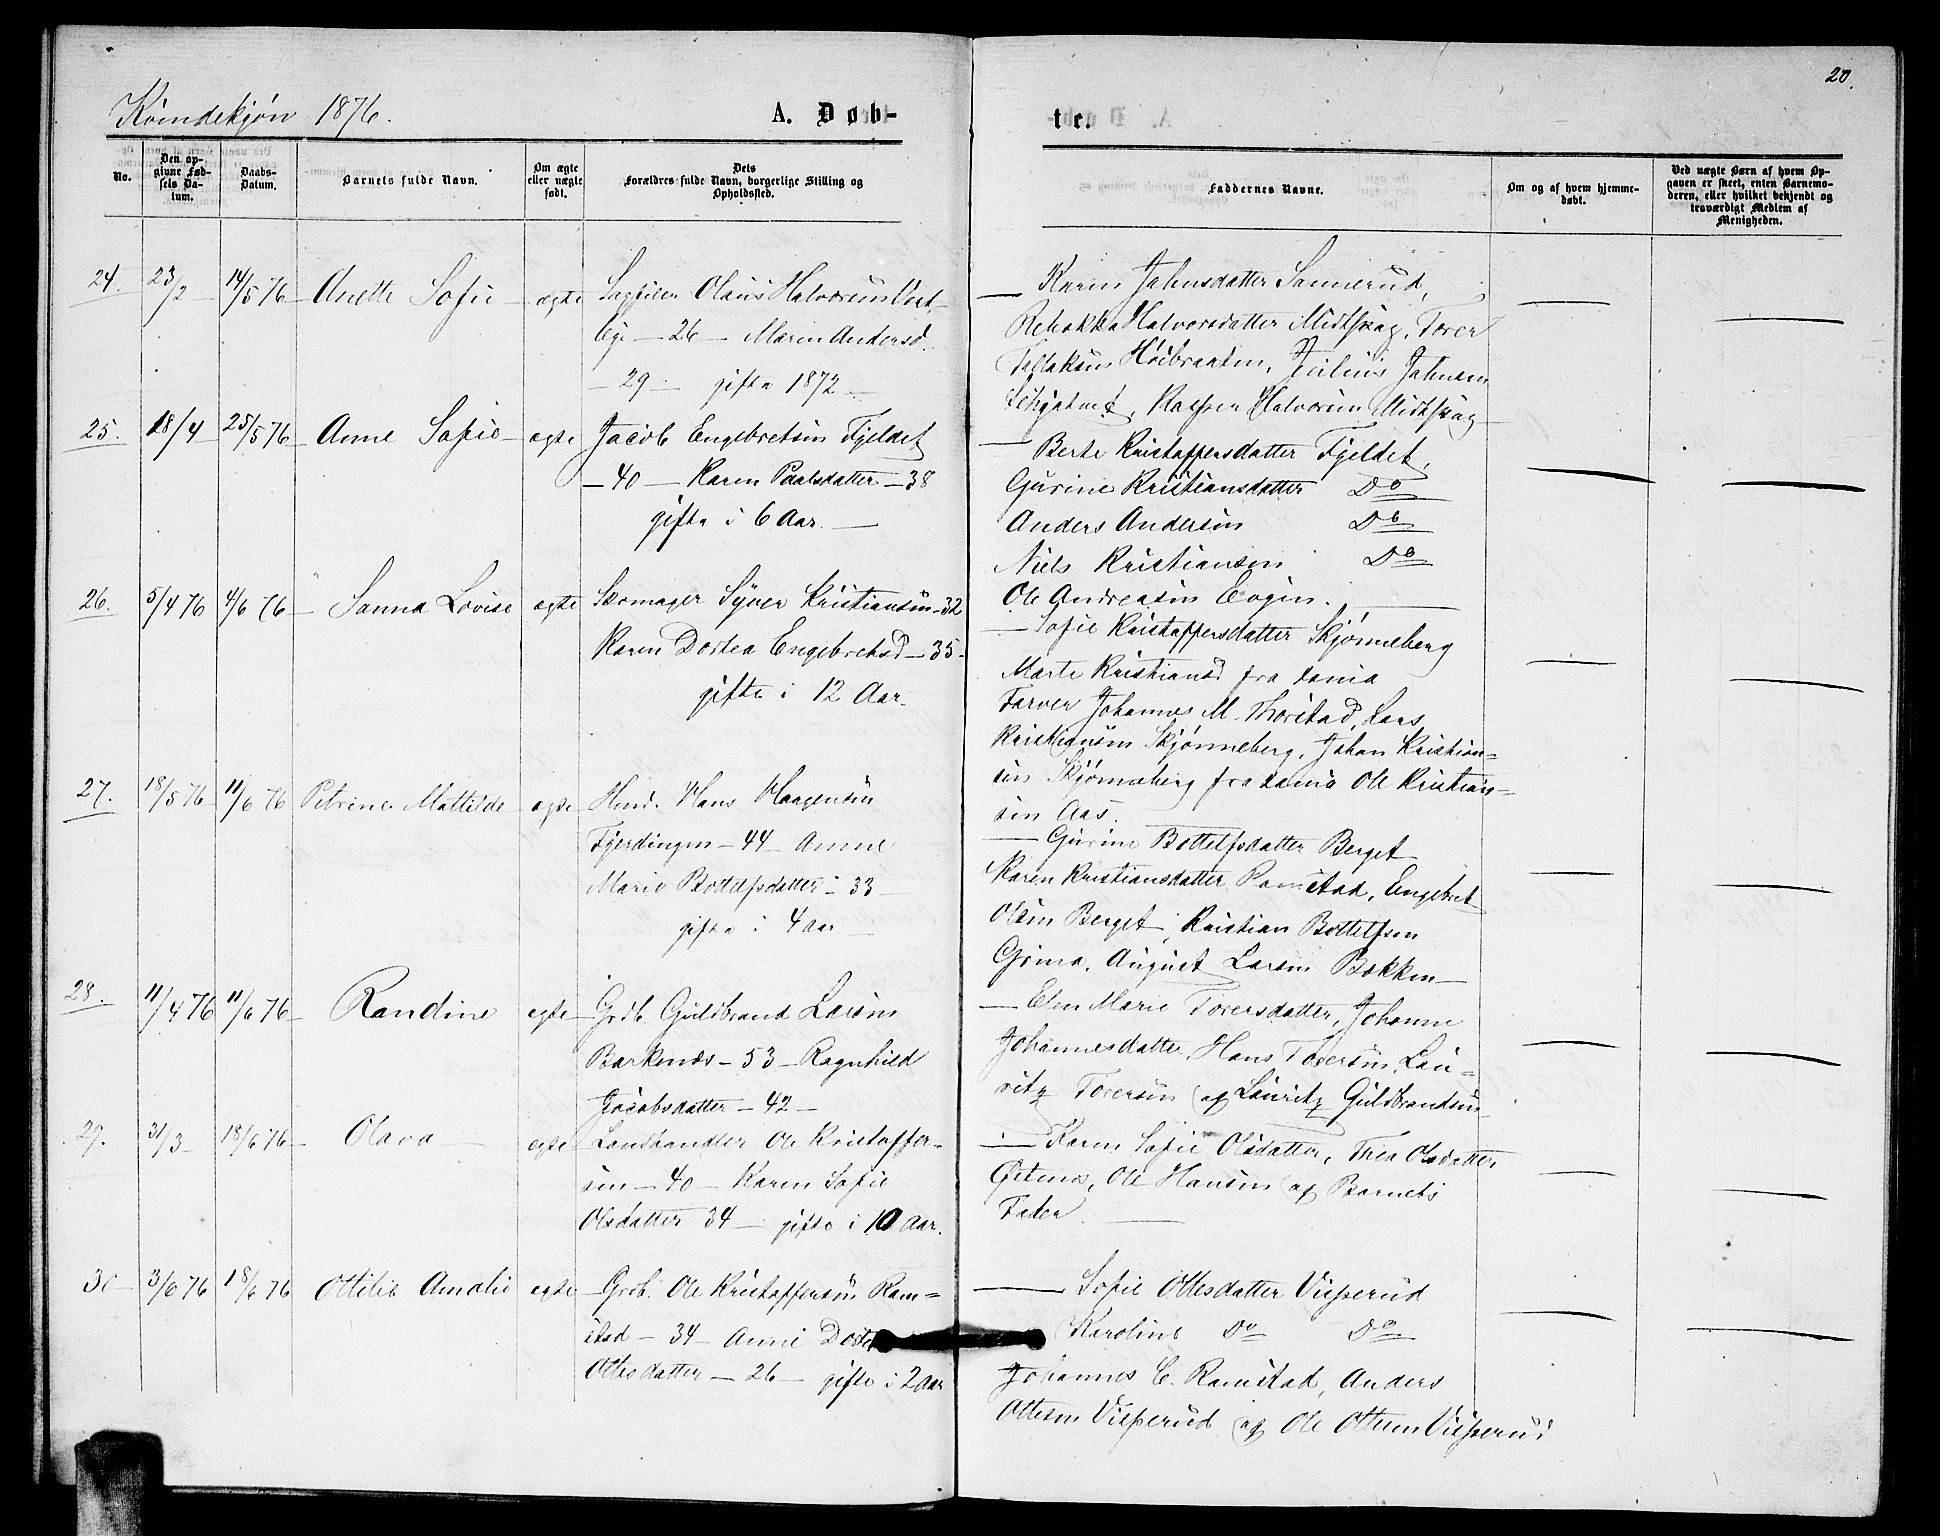 20.
Kvindekjøn 1876.
A. Døb-
te.
No.
Den op-
givne Fød-
sels Da-
tum.
Daabs-
Datum.
Barnets fulde Navn.
Om ægte
eller uægte
født.
Dets
Forældres fulde Navn, borgerlige Stilling og
Opholdssted.
Faddernes Navne.
Om og af hvem hjemme-
døbt.
Ved uægte Børn af hvem Op-
gaven er skeet, enten Barnemo-
deren, eller hvilket bekjendt og
troværdigt Medlem af
Menigheden.
24. 23/2 14/5 76 Anette Sofie ægte Olaus Halvorsen
26 - Maren Andersd.
- 29 - gifte 1872 -
Karen Jahnsdatter Sannerud,
Rebekka Halvorsdatter Midtskog, Torer
Høibraaten, Julius Jahnsen
Halvorsen Midtskog
25. 18/4 25/5 76 Anne Sofie ægte Jacob Engebretsen Fjeldet
- 40 - Karen Paalsdatter - 38
gifte i 6 Aar. -
Berte Kristoffersdatter Fjeldet,
Gurine Kristiansdatter Do
Anders Andersen Do
Niels Kristiansen Do
Ole Andreasen
26. 5/4 76 4/6 76 Sanna Lovise ægte Skomager Syver Kristiansen - 32
Karen Dortea Engebretsd - 35 -
gifte i 12 Aar.
Sofie Kristoffersdatter Skjønneberg
Marte Kristiansd fra Dania
Farver Johannes M. Thorstad, Lars
Kristiansen Skjønneberg, Johan Kristian-
sen Skjønneberg fra Dania Ole Kristian-
sen Aas.
27. 18/5 76 11/6 76 Petrine Mathilde ægte Hmd. Hans Haagensen
Fjerdingen - 44 - Anne
Marie Bottelfsdatter - 33 -
gifte i 4 Aar -
Gurine Bottelfsdatter Berget
Karen Kristiansdatter Ramstad, Engebret
Olsen Berget, Kristian Bottelfsen
August Larsen Bakken
28. 11/4 76 11/6 76 Randine ægte Grdb. Guldbrand Larsen
Barkenæs - 53 - Ragnhild
Jacobsdatter - 42 -
Elen Marie Torersdatter, Johanne
Johannesdatter Hans Torersen, Lau-
ritz Torersen og Lauritz Guldbrandsen
29. 31/3 18/6 76 Olava ægte Landhandler Ole Kristoffer-
sen - 40 - Karen Sofie
Olsdatter 34 - gifte i 10 Aar.
Karen Sofie Olsdatter, Thea Olsdatter
Ole Hansen og Barnets
Fader
30 3/6 76 18/6 76 Ottilie Amalie ægte Grdb. Ole Kristoffersen Ram-
stad - 34 - Anne
Ottesdatter - 26 - gifte i 2 Aar
Sofie Ottesdatter Visperud
Karoline Do Do
Johannes C. Ramstad, Anders
Ottesen Visperud og Ole Ottesen Visperud